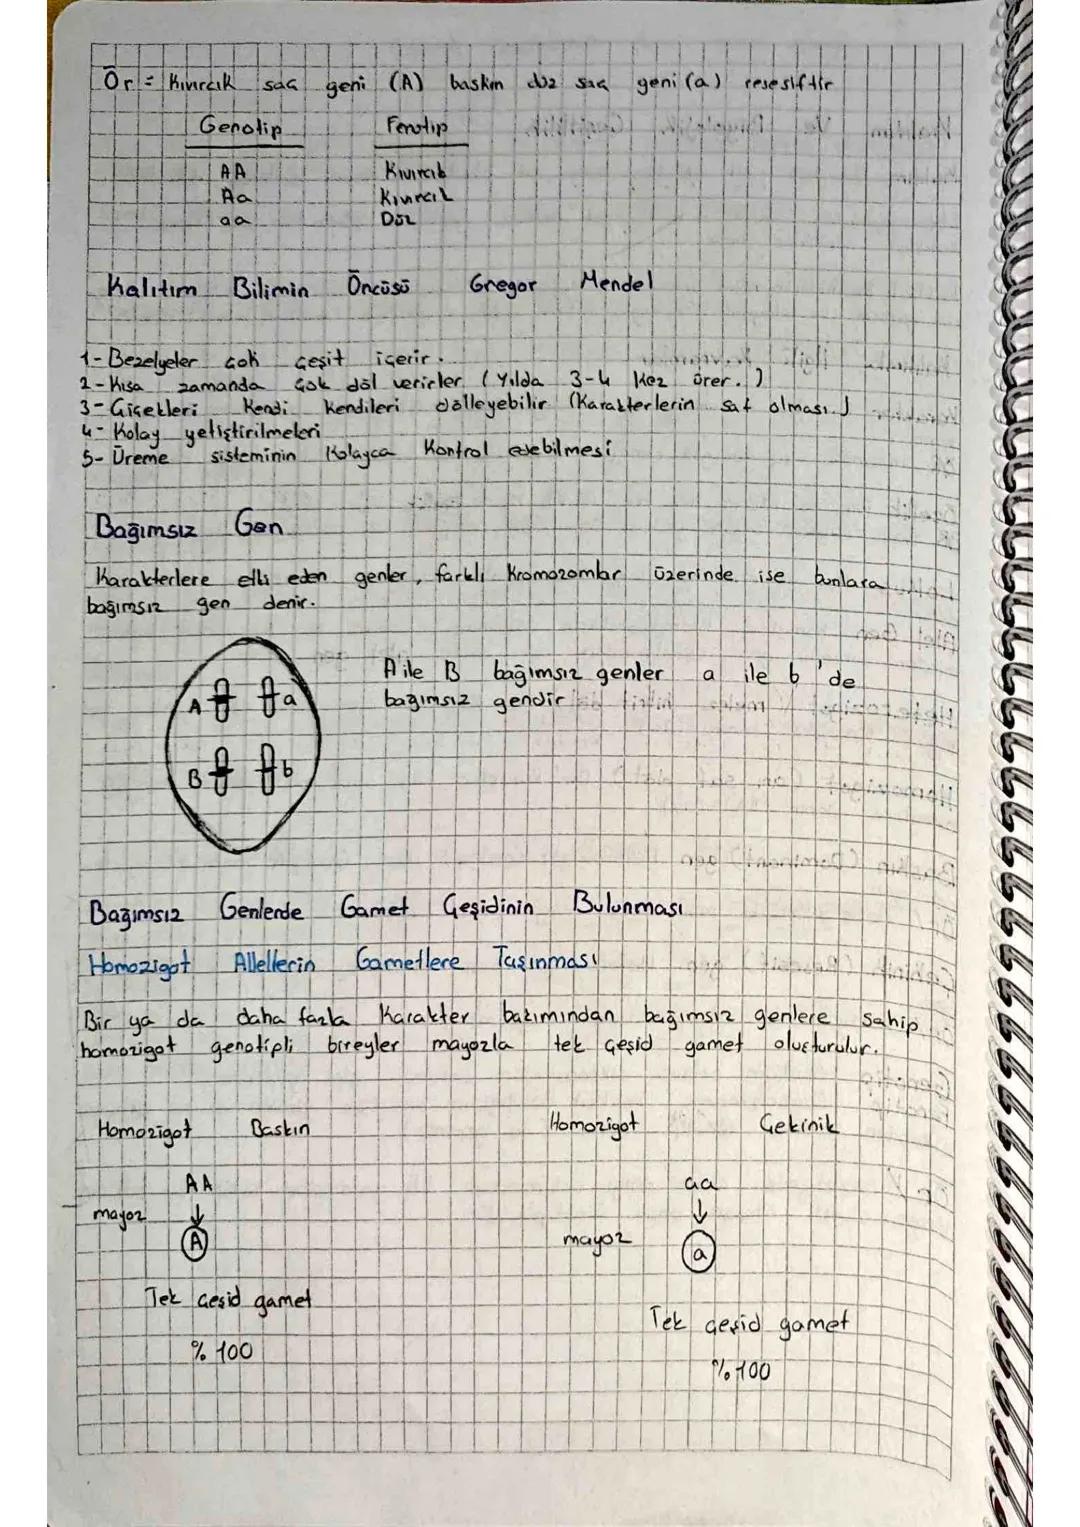 Ör = Kıvırcık saç geni (A) baskın düz saç geni (a) resesiftir
Genotip Fenotip
AA Kıvırcık
Aa Kıvırcık
aa Düz
Kalıtım Bilimin Öncüsü Gregor Mendel
1- Bezelyeler çok çeşit içerir.
2- Kısa zamanda çok döl verirler. (Yılda 3-4 kez ürer.)
3- Çiçekleri kendi kendileri dölleyebilir (Karakterlerin saf olması.)
4- Kolay yetiştirilmeleri
5- Üreme sisteminin kolayca kontrol edebilmesi
Bağımsız Gen
Karakterlere etki eden genler, farklı kromozomlar üzerinde ise bunlara
bağımsız gen denir.
A a
B b
A ile B bağımsız genler a ile b 'de
bağımsız gendir
Bağımsız Genlerde Gamet Çeşidinin Bulunması
Homozigot Allellerin Gametlere Taşınması
Bir ya da daha fazla karakter bakımından bağımsız genlere sahip
homozigot genotipli bireyler mayozla tek çeşid gamet oluşturulur.
Homozigot Baskın Homozigot Çekinik
AA aa
mayoz mayoz
A a
Tek çeşid gamet Tek çeşid gamet
% 100 % 100